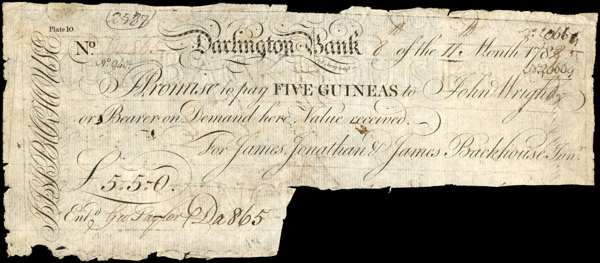 Plate 10
Nº Darlington Bank 8th of the 11th Month 178
I Promise to pay FIVE GUINEAS to John Wright
or Bearer on Demand here Value received.
For James, Jonathan & James Backhouse Junr.
£5-5-0.
Entd. Geo Taylor Da865